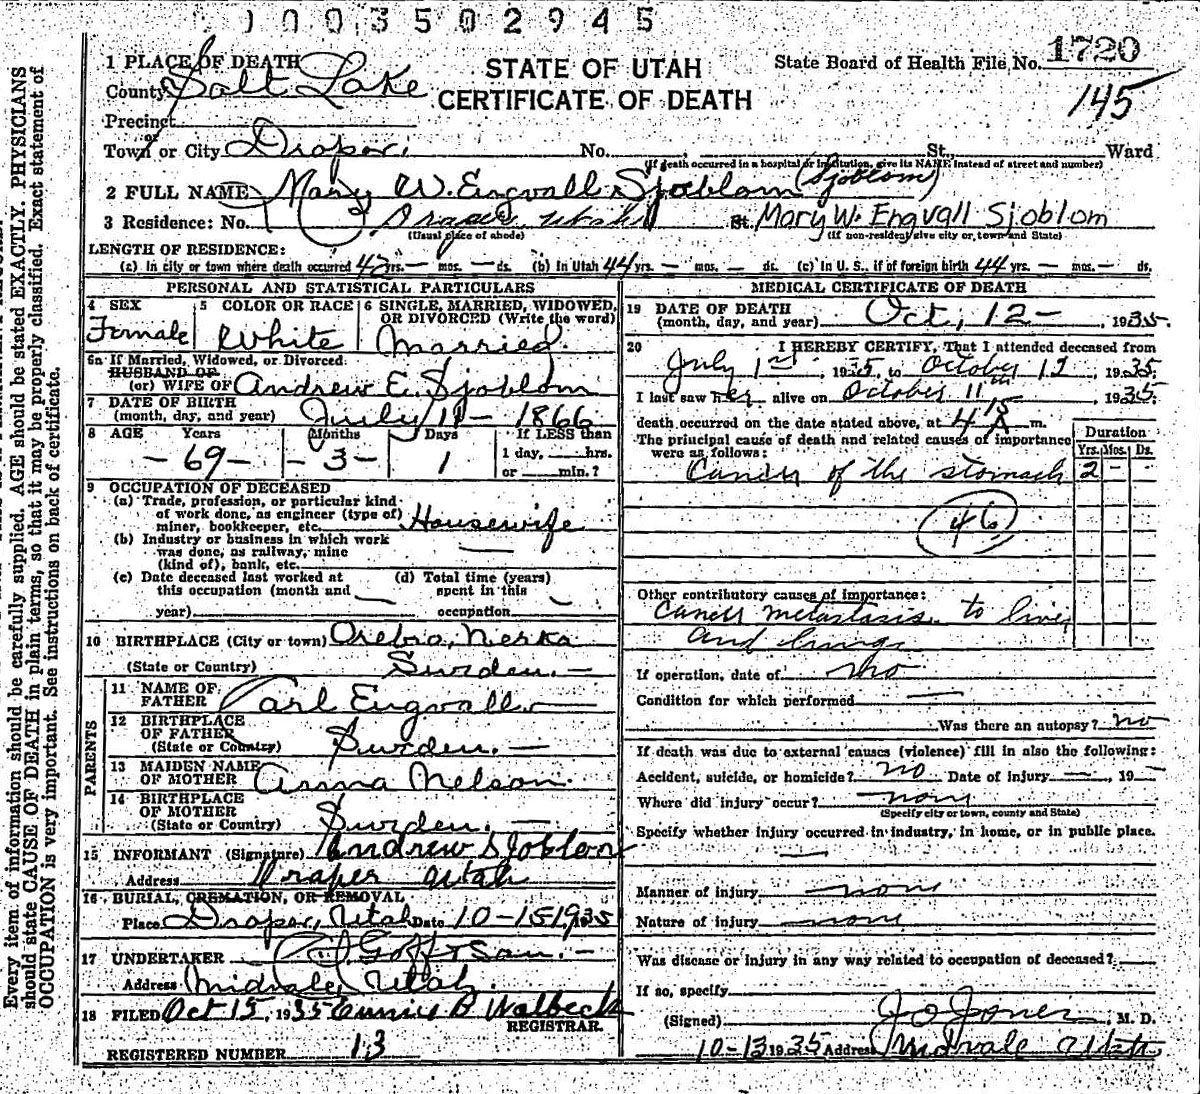 1003502945
1 PLACE OF DEATH
STATE OF UTAH
State Board of Health File No. 1720
County Salt Lake
CERTIFICATE OF DEATH
145
Precinct
or
Town or City Draper. No. St., Ward
(If death occurred in a hospital or institution, give its NAME instead of street and number)
2 FULL NAME Mary W. Engvall Sjoblom (Sjoblom)
3 Residence: No. Draper, Utah St. Mary W. Engvall Sjoblom
(Usual place of abode) (If non-resident give city or town and State)
LENGTH OF RESIDENCE:
(a) In city or town where death occurred 42 yrs. — mos. — ds. (b) In Utah 44 yrs. — mos. — ds. (c) In U. S., if of foreign birth 44 yrs. — mos. — ds.
PERSONAL AND STATISTICAL PARTICULARS
4 SEX
Female
5 COLOR OR RACE
White
6 SINGLE, MARRIED, WIDOWED,
OR DIVORCED (Write the word)
Married.
6a If Married, Widowed, or Divorced
HUSBAND OF
(or) WIFE OF Andrew E. Sjoblom
7 DATE OF BIRTH
(month, day, and year) July 11 - 1866
8 AGE Years Months Days If LESS than
1 day, hrs.
- 69 - - 3 - 1 or min.?
9 OCCUPATION OF DECEASED
(a) Trade, profession, or particular kind
of work done, as engineer (type of)
miner, bookkeeper, etc. Housewife
(b) Industry or business in which work
was done, as railway, mine
(kind of), bank, etc. —
(c) Date deceased last worked at
this occupation (month and
year) —
(d) Total time (years)
spent in this
occupation —
10 BIRTHPLACE (City or town) Orebro, Nerka
(State or Country) Sweden. -
PARENTS
11 NAME OF
FATHER Carl Engvall -
12 BIRTHPLACE
OF FATHER
(State or Country) Sweden. -
13 MAIDEN NAME
OF MOTHER Anna Nelson.
14 BIRTHPLACE
OF MOTHER
(State or Country) Sweden. -
15 INFORMANT (Signature) Andrew Sjoblom
Address Draper Utah
16 BURIAL, CREMATION, OR REMOVAL
Place Draper, Utah Date 10-15 1935
17 UNDERTAKER Goff & Son. -
Address Midvale, Utah.
18 FILED Oct 15, 1935 B Walbeck
REGISTRAR.
REGISTERED NUMBER 13
MEDICAL CERTIFICATE OF DEATH
19 DATE OF DEATH
(month, day, and year) Oct, 12 - , 1935.
20 I HEREBY CERTIFY, That I attended deceased from
July 1st, 1935, to October 12, 1935.
I last saw her alive on October 11th, 1935
death occurred on the date stated above, at 4 15 A m.
The principal cause of death and related causes of importance
were as follows:
Duration
Yrs. Mos. Ds.
Cancer of the stomach 2 -
46
Other contributory causes of importance:
Cancer metastasis to liver
and lungs
If operation, date of no
Condition for which performed —
Was there an autopsy? no
If death was due to external causes (violence) fill in also the following:
Accident, suicide, or homicide? no Date of injury —, 19 —
Where did injury occur? none
(Specify city or town, county and State)
Specify whether injury occurred in industry, in home, or in public place.
—
Manner of injury none
Nature of injury none
Was disease or injury in any way related to occupation of deceased?
If so, specify
(Signed) J O Jones, M. D.
10-13 1935 Address Midvale Utah
Every item of information should be carefully supplied. AGE should be stated EXACTLY. PHYSICIANS
should state CAUSE OF DEATH in plain terms, so that it may be properly classified. Exact statement of
OCCUPATION is very important. See instructions on back of certificate.